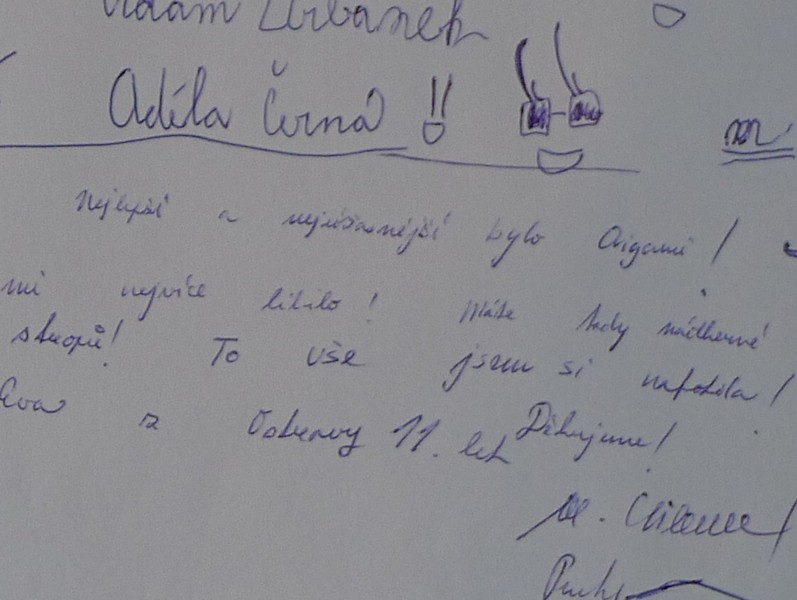 Adam Urbánek
Adéla Černá !!
Nejlepší a nejúžasnější bylo Origami!
mi nejvíce líbilo! Máte tady nádherné
stropů! To vše jsem si nafotila!
Eva z Ostravy 11. let Děkujeme!
M.